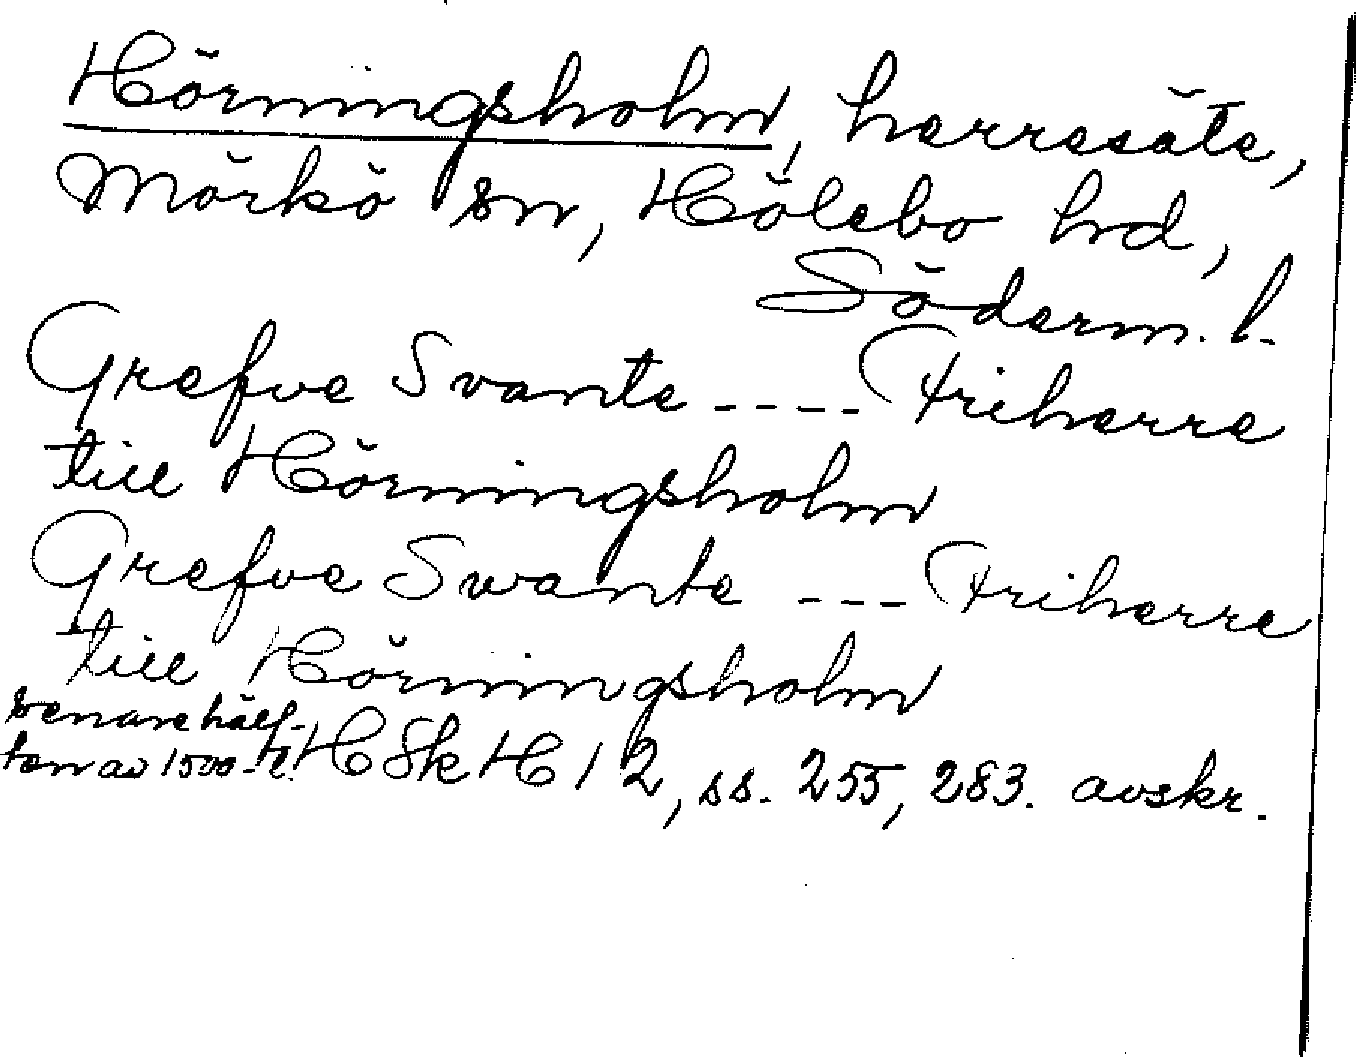 Hörningsholm, herresäte,
Mörkö sn, Hölebo hd,
Söderm. l.
Grefve Svante ---- Friherre
till Hörningsholm
Grefve Swante --- Friherre
till Hörningsholm
senare hälf-
ten av 1500-t. H Sk H 12, ss. 255, 283. avskr.